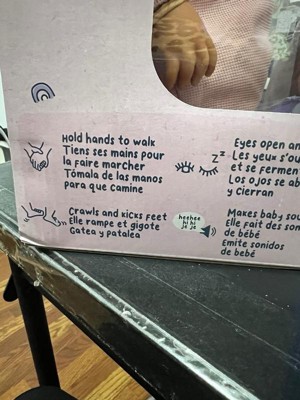 Hold hands to walk
Tiens ses mains pour
la faire marcher
Tómala de las manos
para que camine
zz
Eyes open an
Les yeux s'ou
et se fermen
Los ojos se ab
y cierran
Crawls and kicks feet
Elle rampe et gigote
Gatea y patalea
heehee
hi hi
je je
Makes baby sou
Elle fait des son
de bébé
Emite sonidos
de bebé